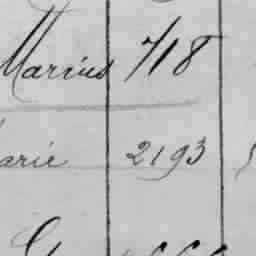 Marius 718
arie 2193